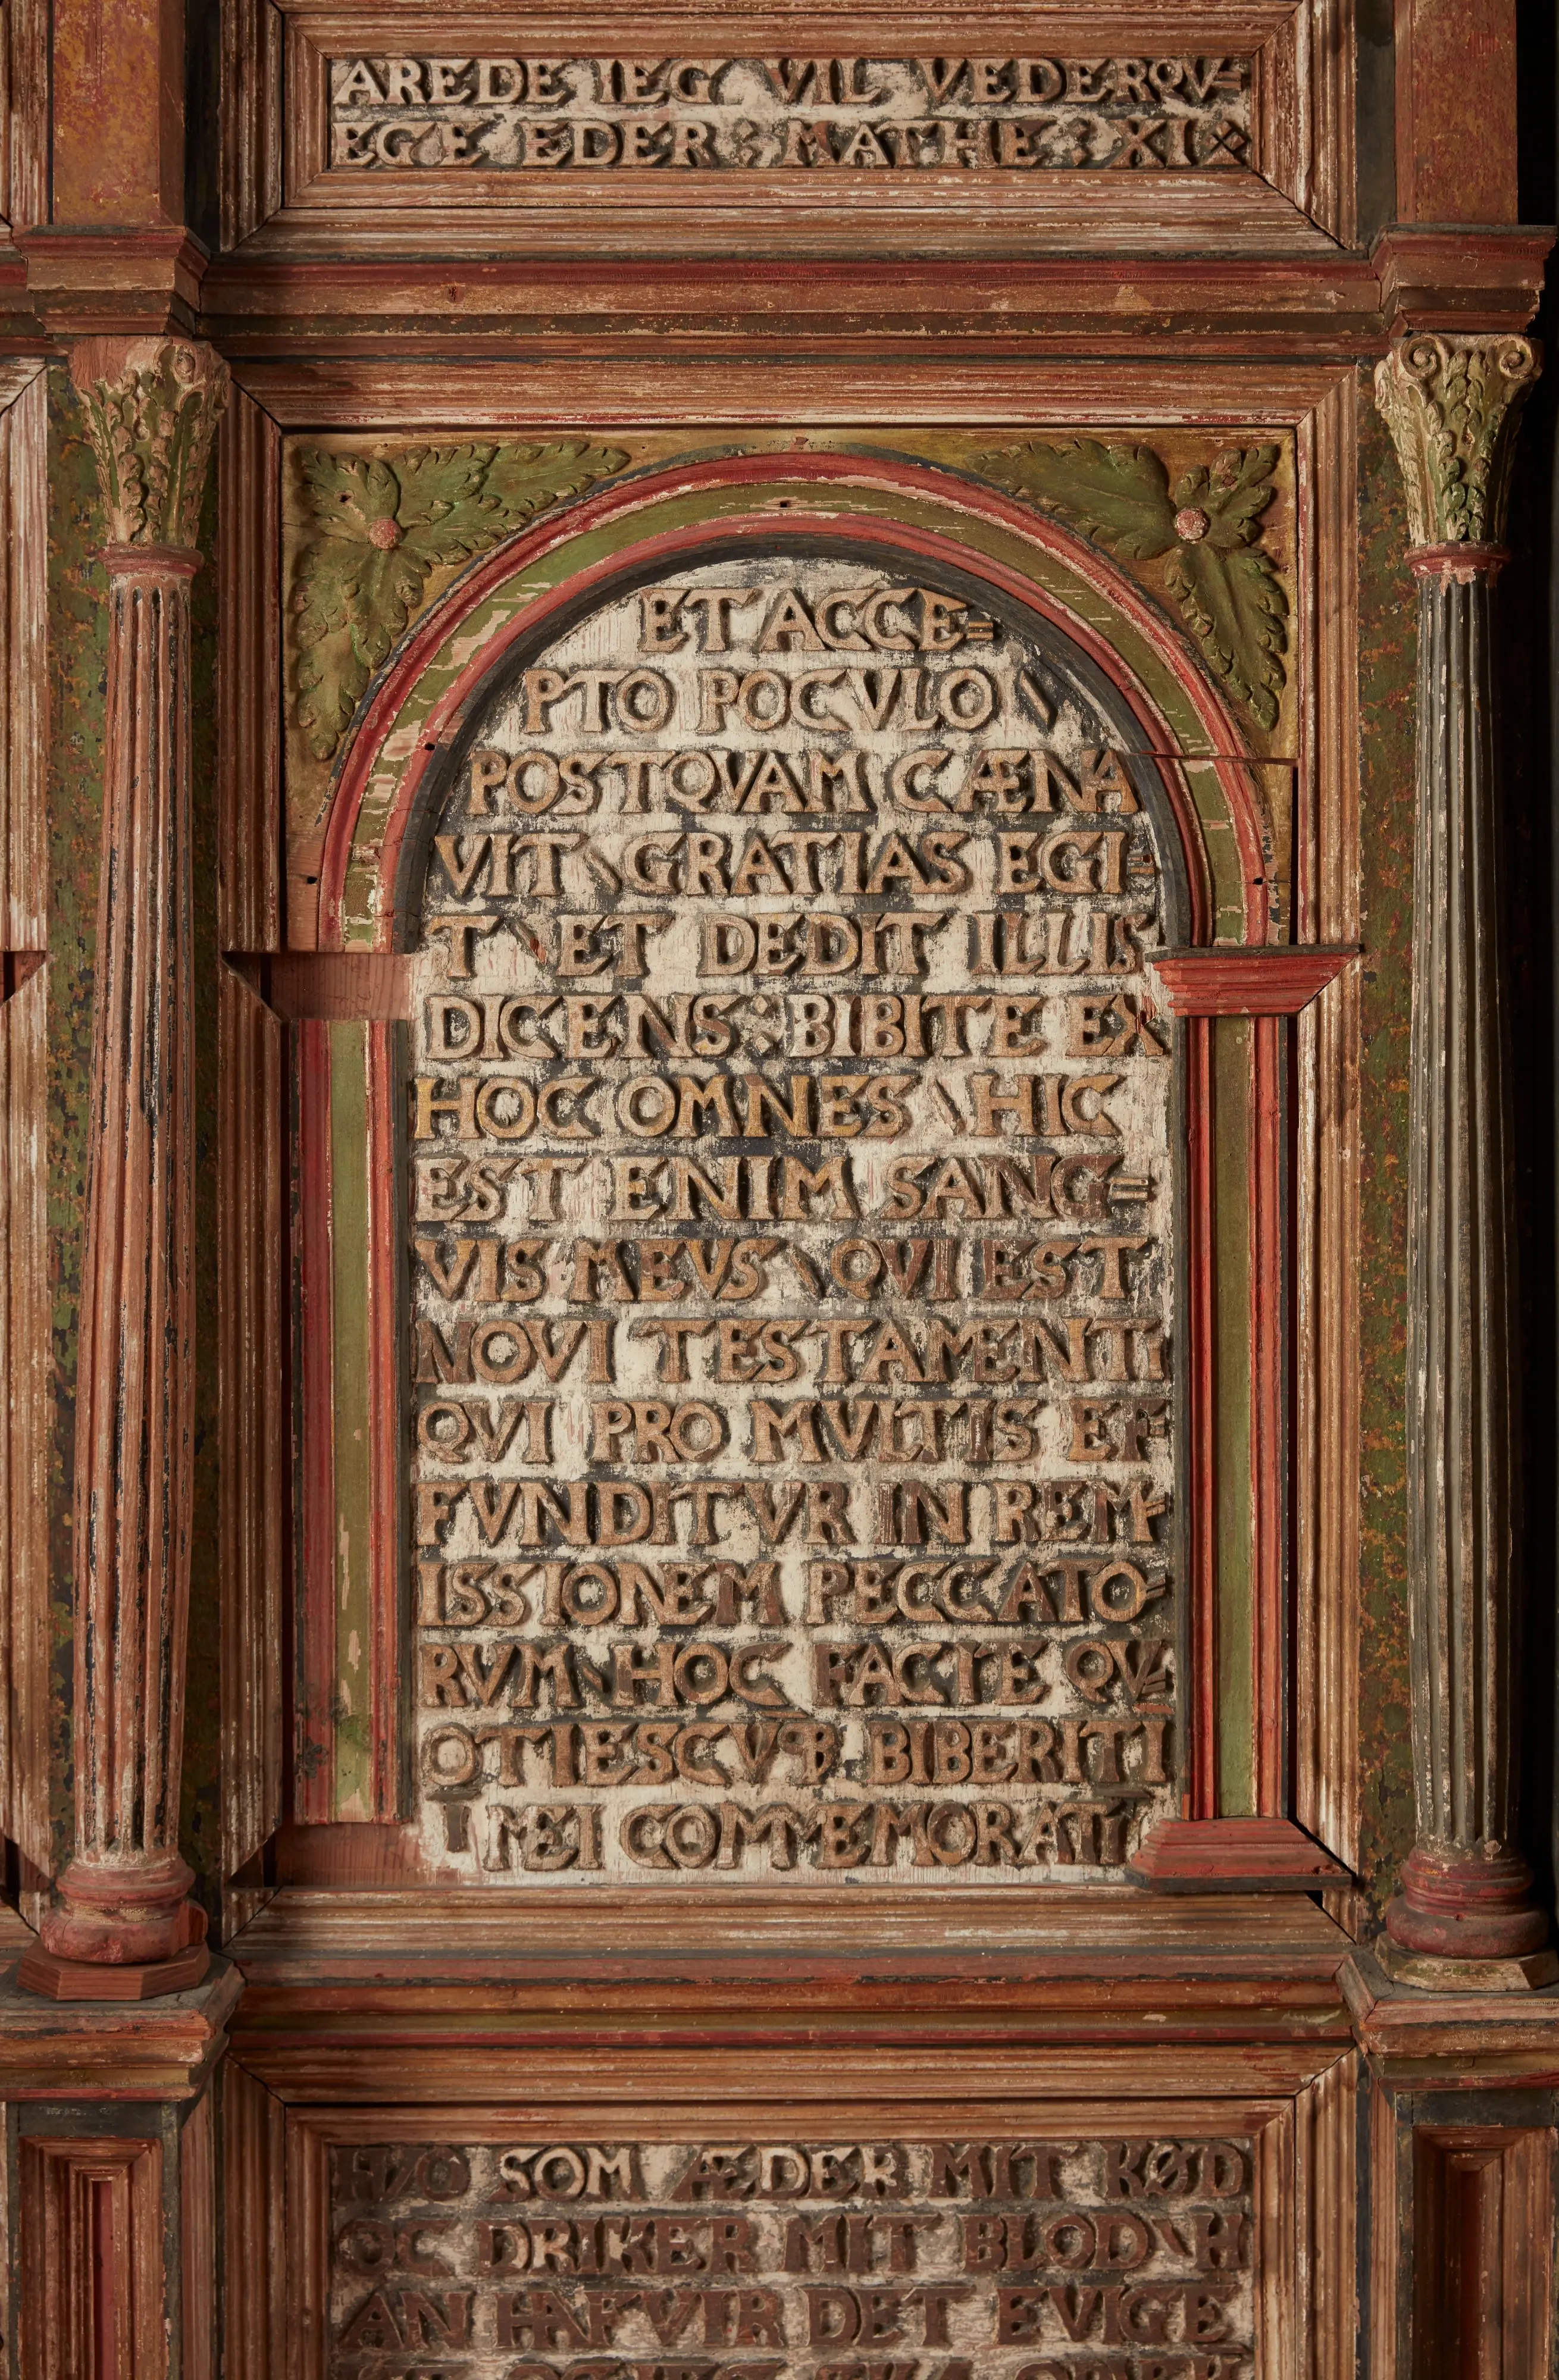 AREDE IEG VIL VEDERQV=
EGE EDER : MATHE : XI
ET ACCE=
PTO POCVLO \
POSTQVAM CÆNA
VIT \ GRATIAS EGI=
T \ ET DEDIT ILLIS
DICENS : BIBITE EX
HOC OMNES \ HIC
EST ENIM SANG=
VIS MEVS \ QVI EST
NOVI TESTAMENTI
QVI PRO MVLTIS EF=
FVNDITVR IN REM=
ISSIONEM PECCATO=
RVM \ HOC FACITE QV=
OTIESCVꝘ BIBERITI
I MEI COMMEMORATI
HVO SOM ÆDER MIT KØD
OC DRIKER MIT BLOD \ H
AN HAFVIR DET EVIGE